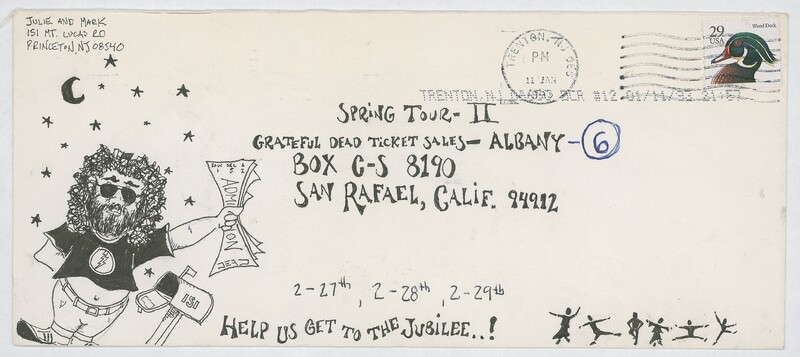 JULIE AND MARK
151 MT. LUCAS RD
PRINCETON, NJ 08540
TRENTON, NJ
PM
11 JAN
29
USA
Wood Duck
TRENTON, N.J.
#12 01/11/93
SPRING TOUR - II
GRATEFUL DEAD TICKET SALES - ALBANY - 6
BOX C-S 8190
SAN RAFAEL, CALIF. 94912
ADMISSION
151
2-27th, 2-28th, 2-29th
HELP US GET TO THE JUBILEE..!